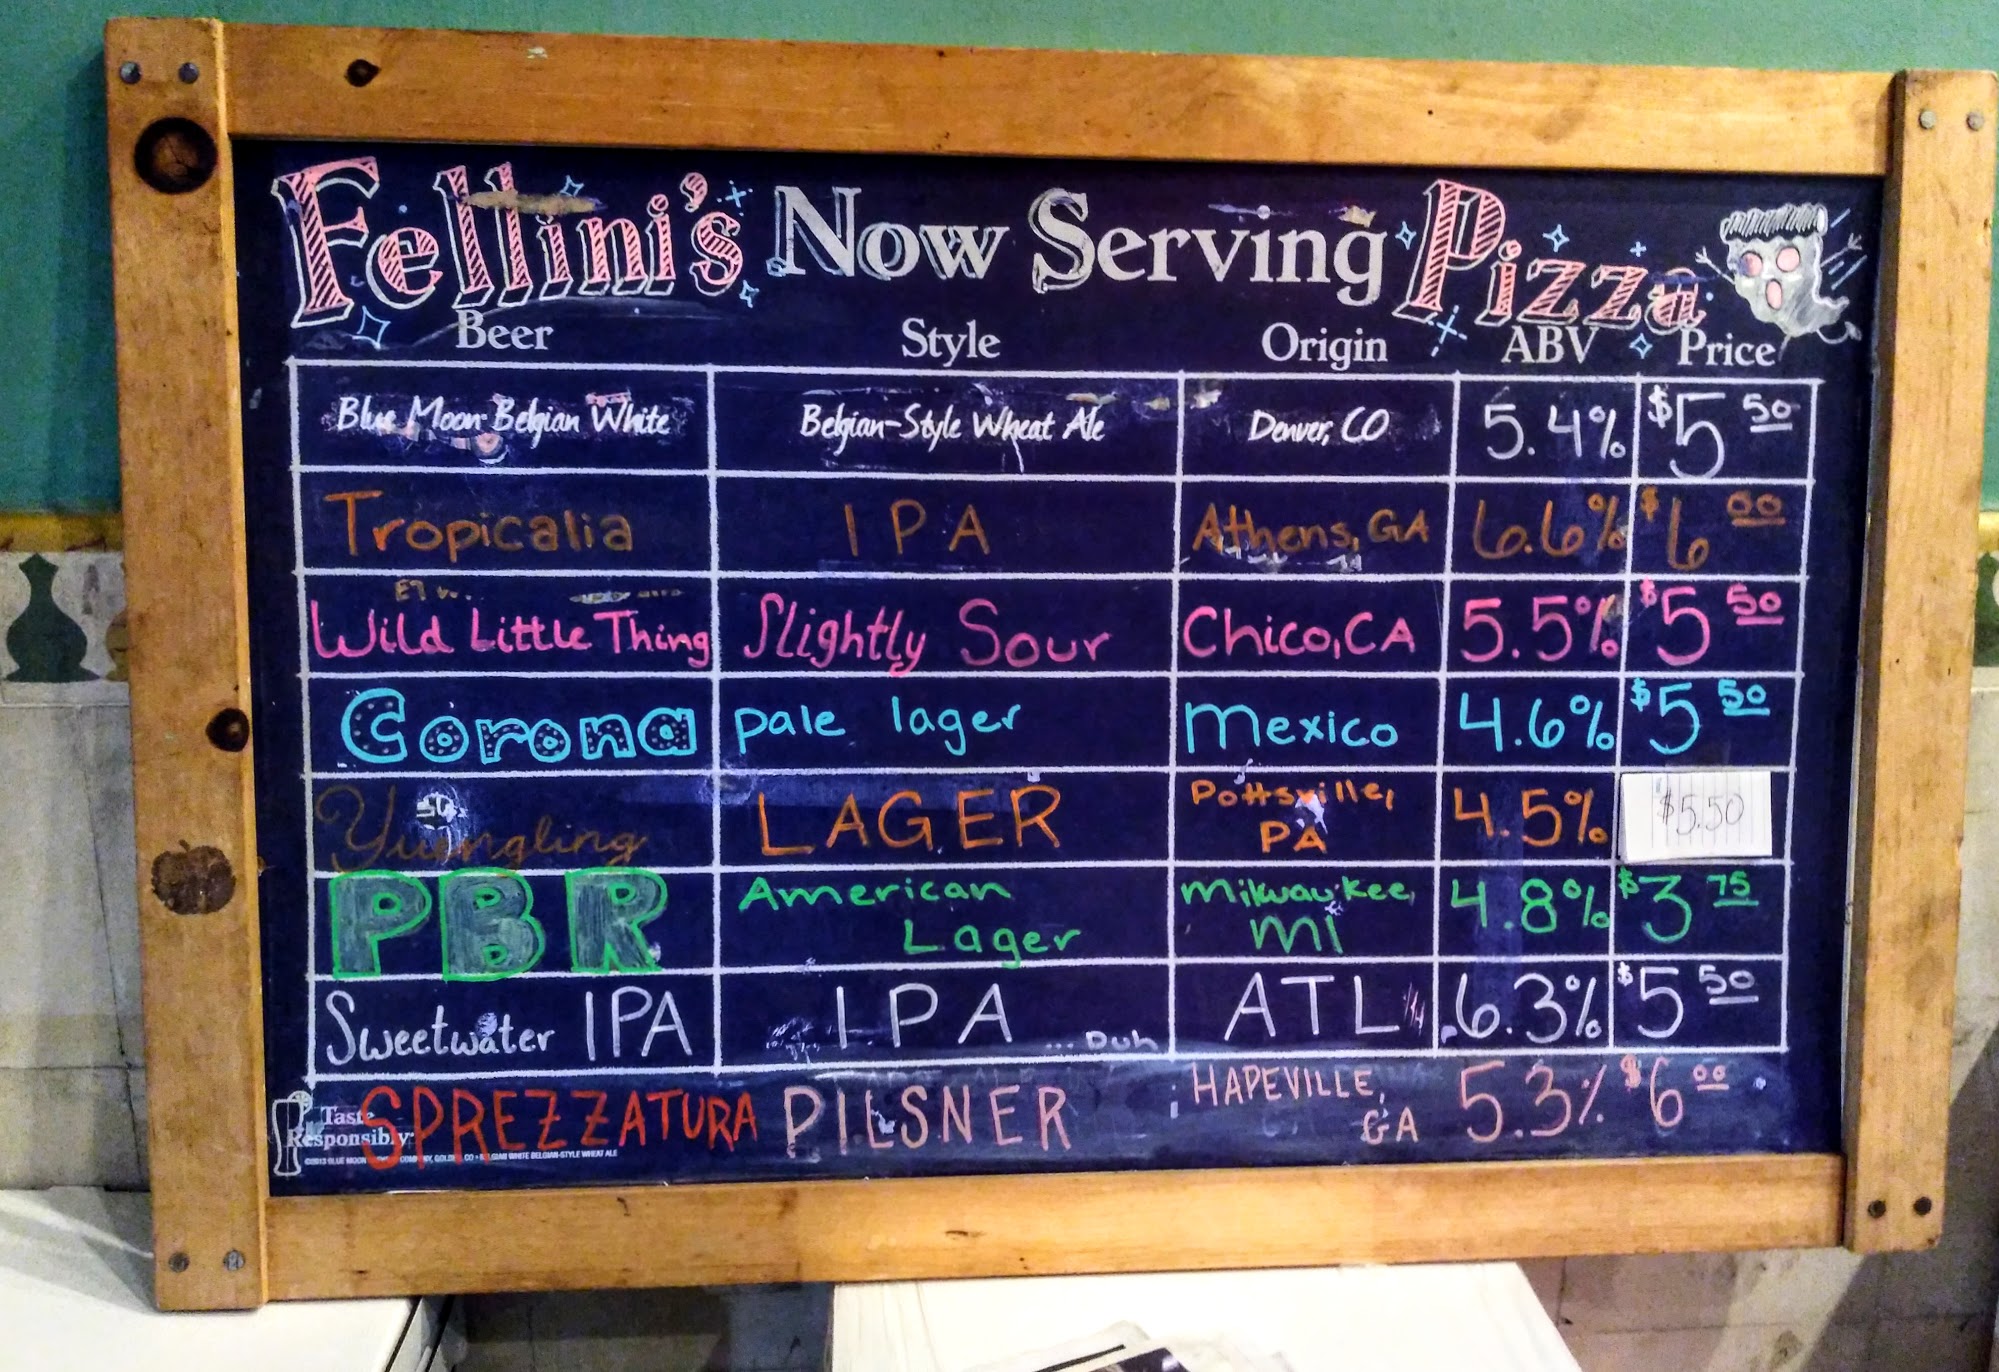 Fellini's Now Serving Pizza
Beer Style Origin ABV Price
Blue Moon Belgian White Belgian-Style Wheat Ale Denver, CO 5.4% $5 50
Tropicalia IPA Athens, GA 6.6% $6 00
Wild Little Thing Slightly Sour Chico, CA 5.5% $5 50
Corona pale lager Mexico 4.6% $5 50
Yuengling LAGER Pottsville, PA 4.5% $5.50
PBR American Lager Milwaukee, MI 4.8% $3 75
Sweetwater IPA IPA ...Duh ATL 6.3% $5 50
SPREZZATURA PILSNER HAPEVILLE, GA 5.3% $6 00
Taste
Responsibly